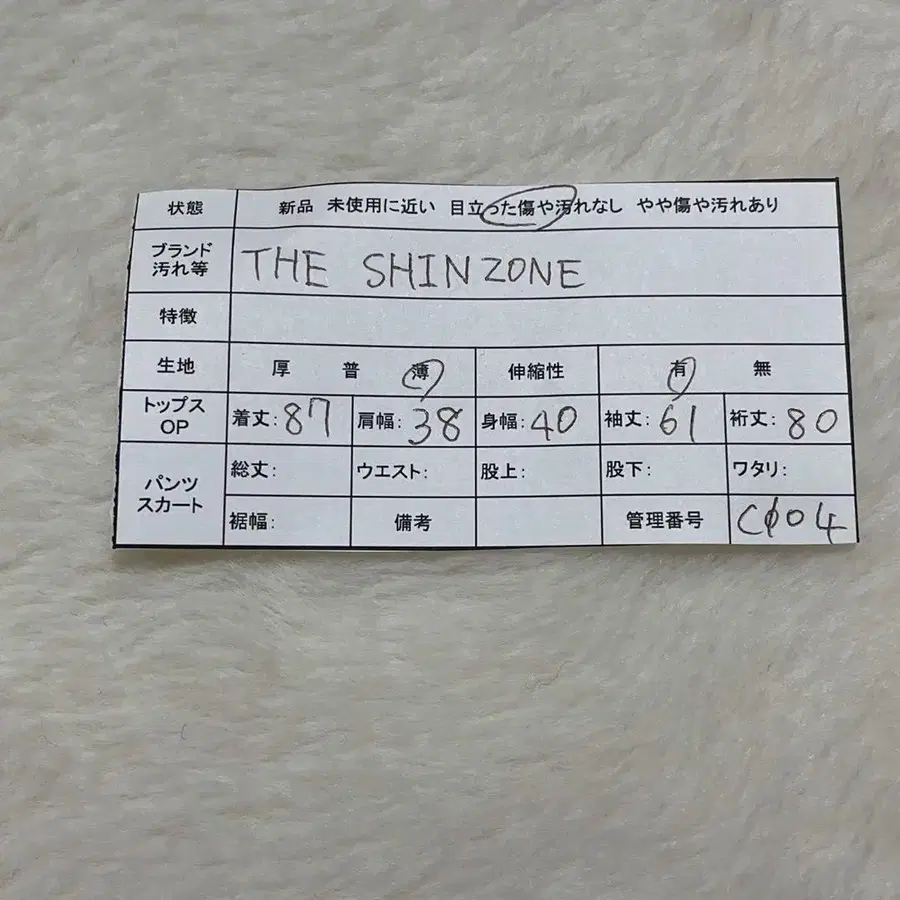 状態 新品 未使用に近い 目立った傷や汚れなし やや傷や汚れあり
ブランド
汚れ等
THE SHINZONE
特徴
生地 厚 普 薄 伸縮性 有 無
トップス
OP
着丈: 87 肩幅: 38 身幅: 40 袖丈: 61 裄丈: 80
パンツ
スカート
総丈: ウエスト: 股上: 股下: ワタリ:
裾幅: 備考 管理番号 C004